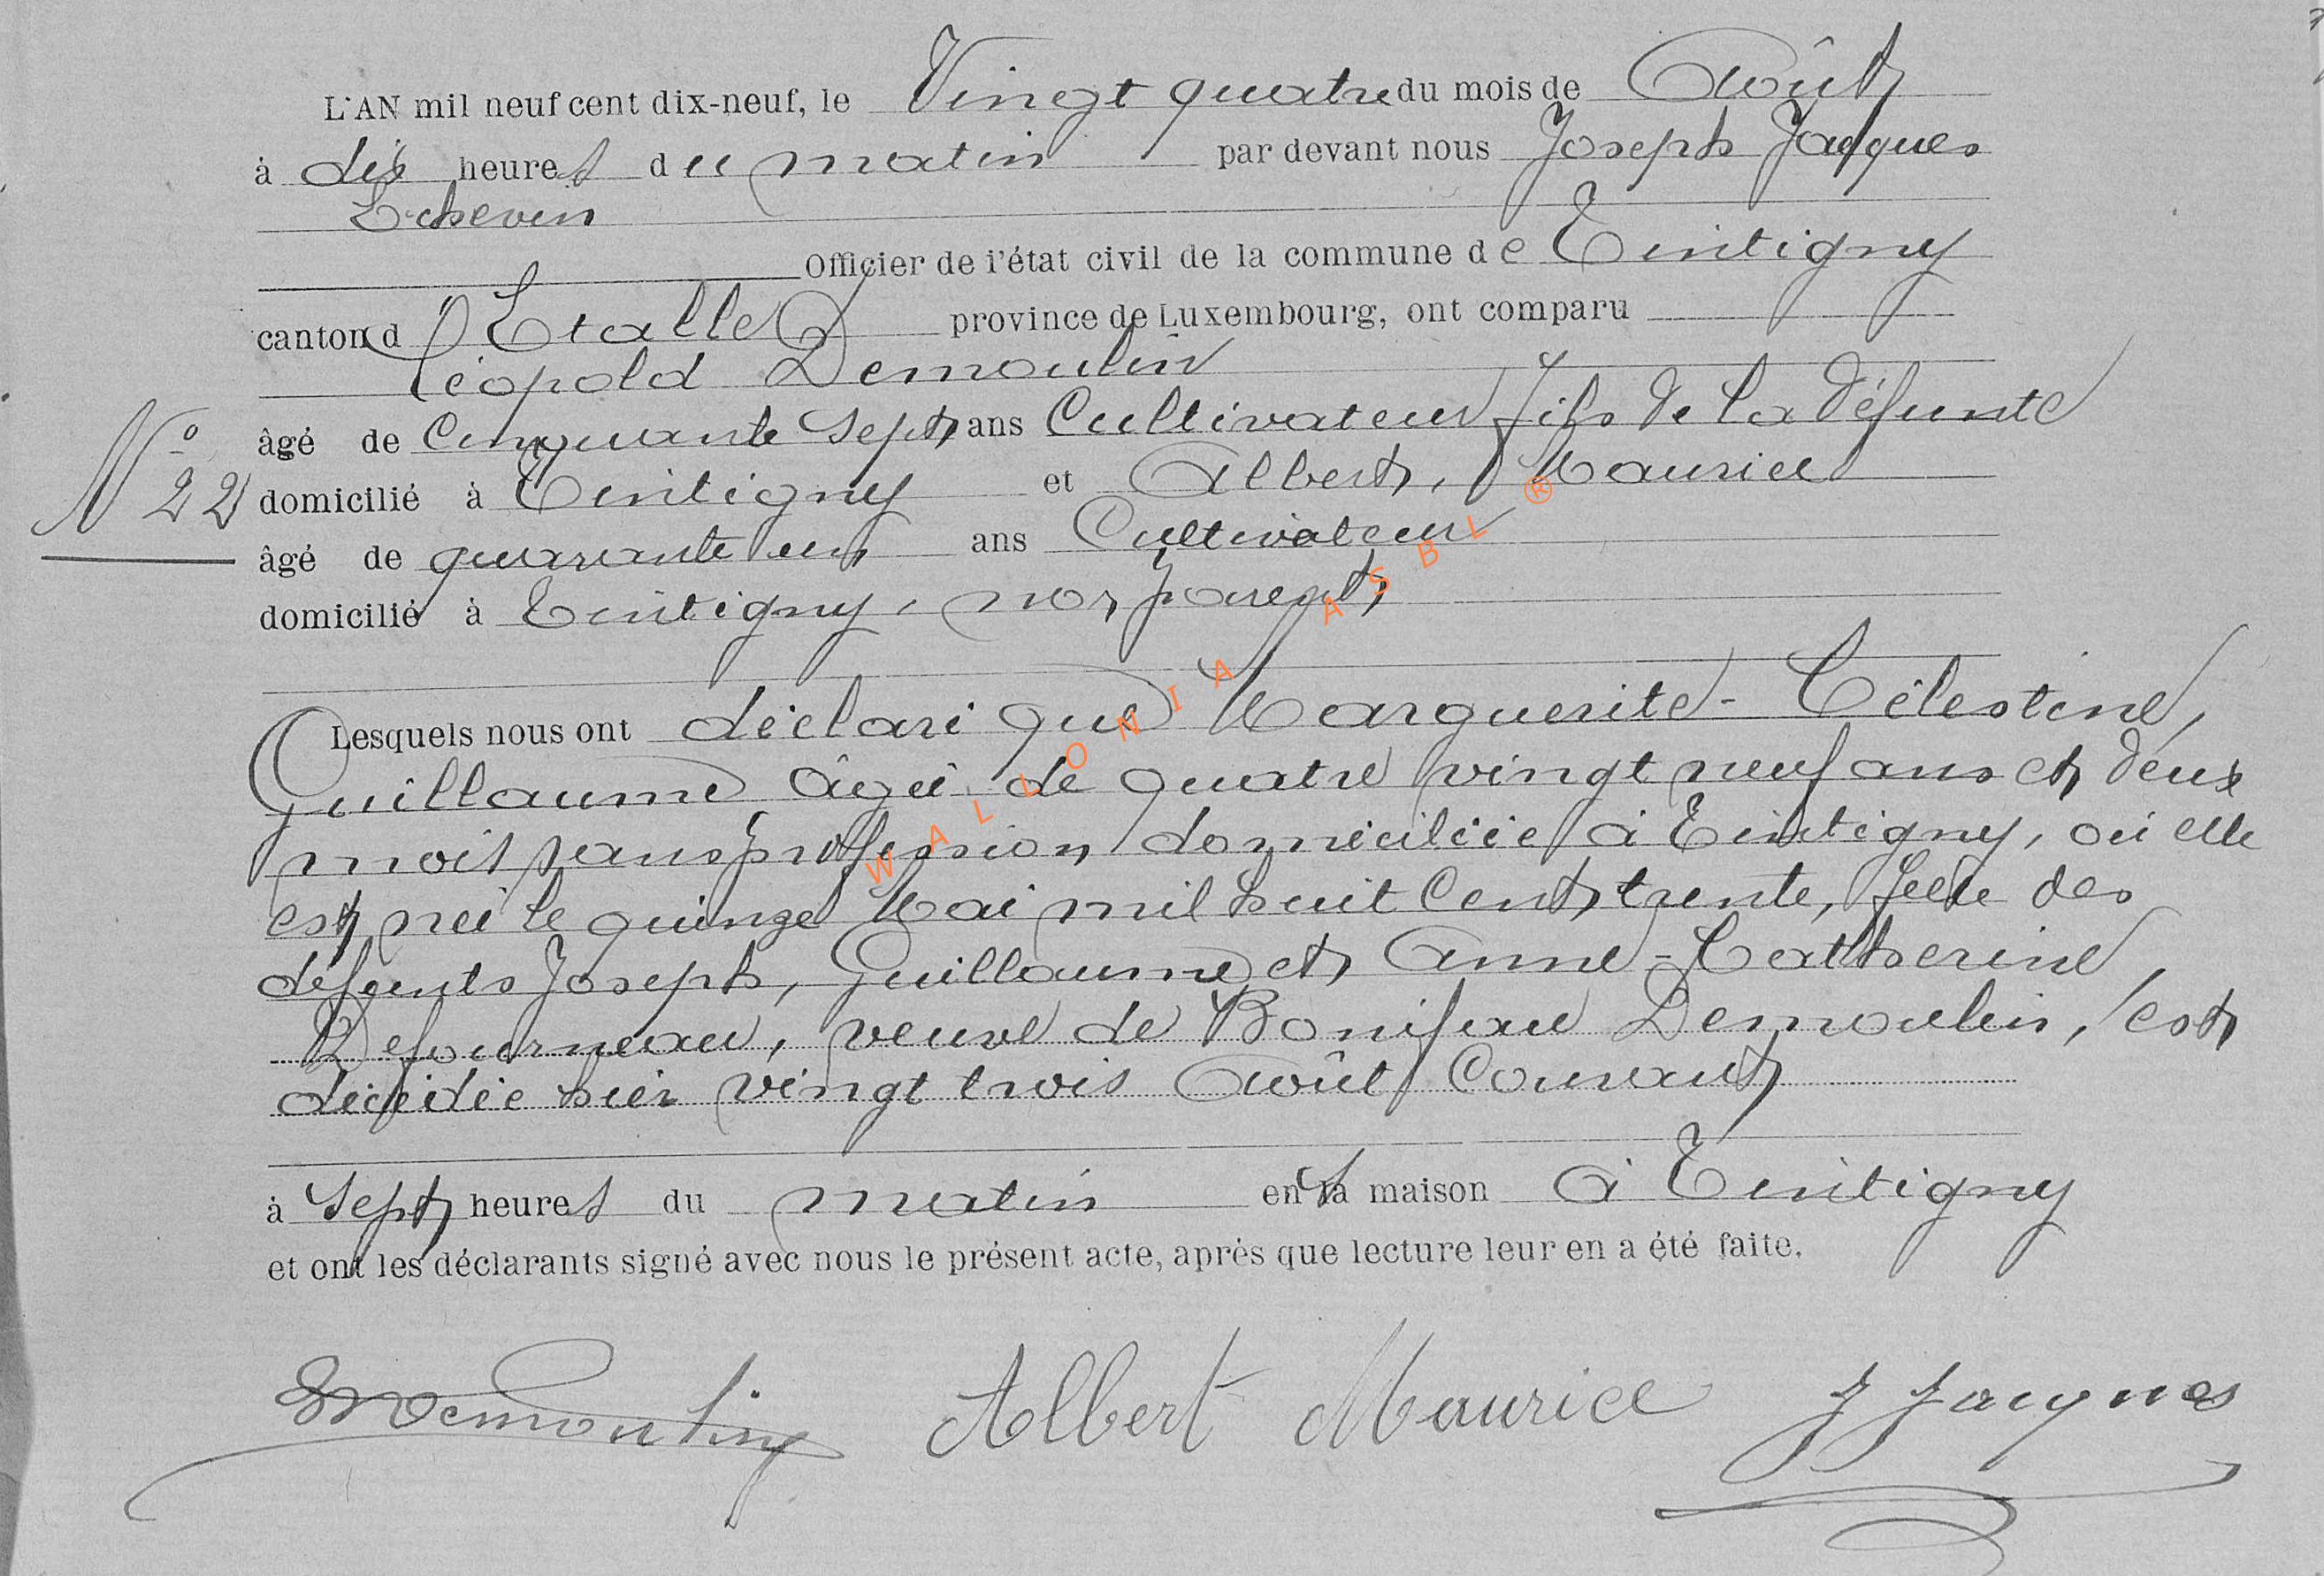 L'AN mil neuf cent dix-neuf, le Vingt quatre du mois de Août
à dix heures du matin par devant nous Joseph Jacques
Echevin
Officier de l'état civil de la commune de Tintigny
canton d'Etalle province de Luxembourg, ont comparu
Léopold Demoulin
âgé de Cinquante Sept ans Cultivateur fils de la défunte
N° 22
domicilié à Tintigny et Albert, Maurice
âgé de quarante un ans Cultivateur
domicilié à Tintigny, non parent,
Lesquels nous ont déclaré que Marguerite-Célestine,
Guillaume âgée de quatre vingt neuf ans et deux
mois sans profession domiciliée à Tintigny, où elle
est née le quinze Mai mil huit Cent trente, fille des
défunts Joseph, Guillaume et Anne-Catherine,
Defourneau, veuve de Boniface Demoulin, est
décédée hier vingt trois Août Courant
à Sept heures du matin en sa maison à Tintigny
et ont les déclarants signé avec nous le présent acte, après que lecture leur en a été faite.
Demoulin Albert Maurice J Jacques
WALLONIA ASBL ®